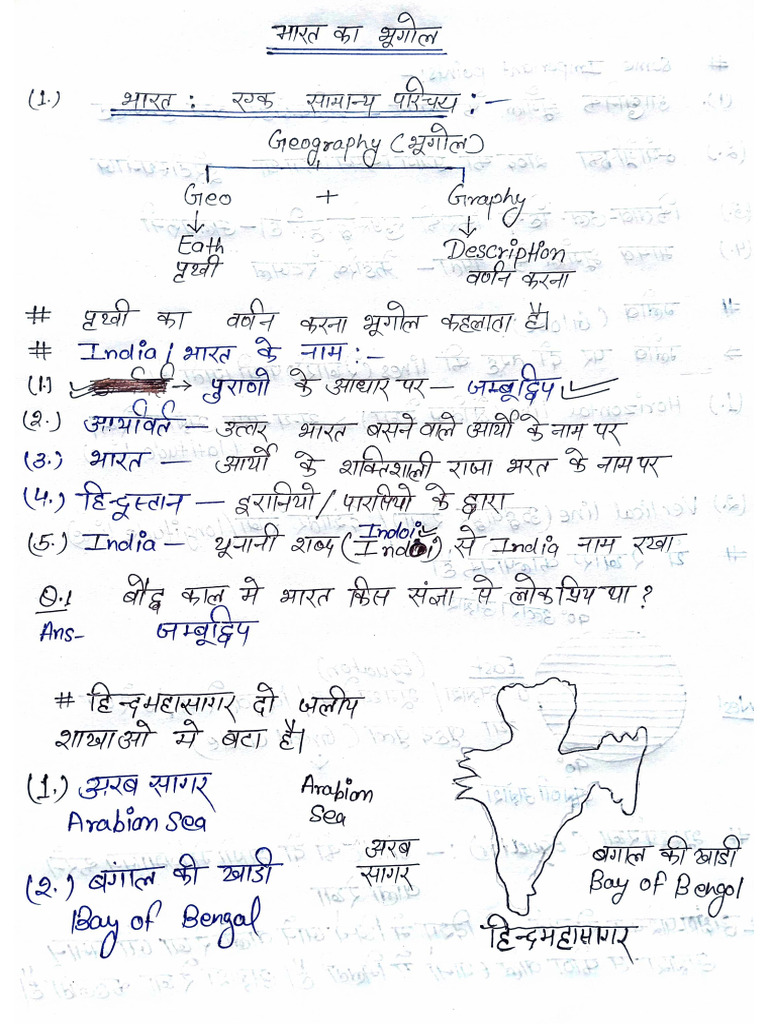 भारत का भूगोल
(1.) भारत : एक सामान्य परिचय :-
Geography (भूगोल)
Geo + Graphy
Eath Description
पृथ्वी वर्णन करना
# पृथ्वी का वर्णन करना भूगोल कहलाता है।
# India / भारत के नाम :-
(1.) → पुराणो के आधार पर — जम्बूद्विप
(2.) आर्यावर्त — उत्तर भारत बसने वाले आर्यो के नाम पर
(3.) भारत — आर्यो के शक्तिशाली राजा भरत के नाम पर
(4.) हिन्दूस्तान — इरानियो / पारसियो के द्वारा
Indoi
(5.) India — यूनानी शब्द (Indoi) से India नाम रखा
Q.1 बौद्ध काल मे भारत किस संज्ञा से लोकप्रिय था ?
Ans- जम्बूद्विप
# हिन्दमहासागर दो जलीय
शाखाओ मे बटा है।
(1.) अरब सागर
Arabion Sea
Arabion
Sea
अरब
सागर
(2.) बगांल की खाडी
Bay of Bengal
बगाल की खाडी
Bay of Bengol
हिन्दमहासागर